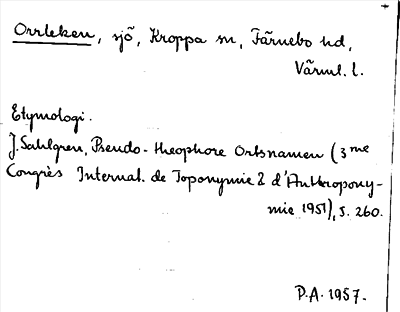 Orrleken, sjö, Kroppa sn, Färnebo hd,
Värml. l.
Etymologi.
J. Sahlgren, Pseudo-theophore Ortsnamen (3me
Congrès Internat. de Toponymie & d'Anthropony-
mie 1951), s. 260.
P.A. 1957.